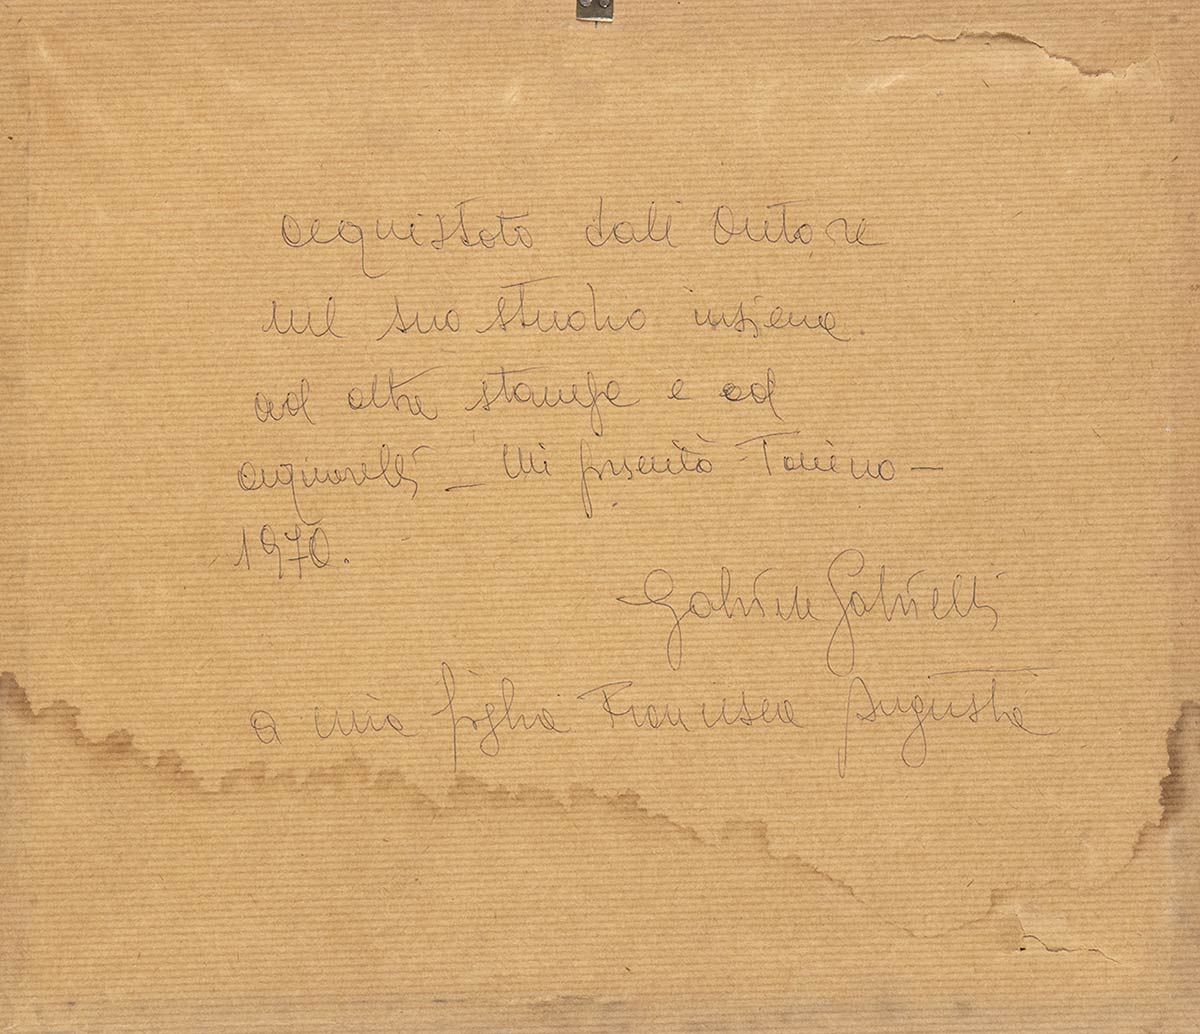 acquistato dall'autore
nel suo studio insieme
ad altre stampe e ad
acquarelli - Mi presentò Tonino -
1970.
Gabriele Gabrielli
a mia figlia Francesca Augusta